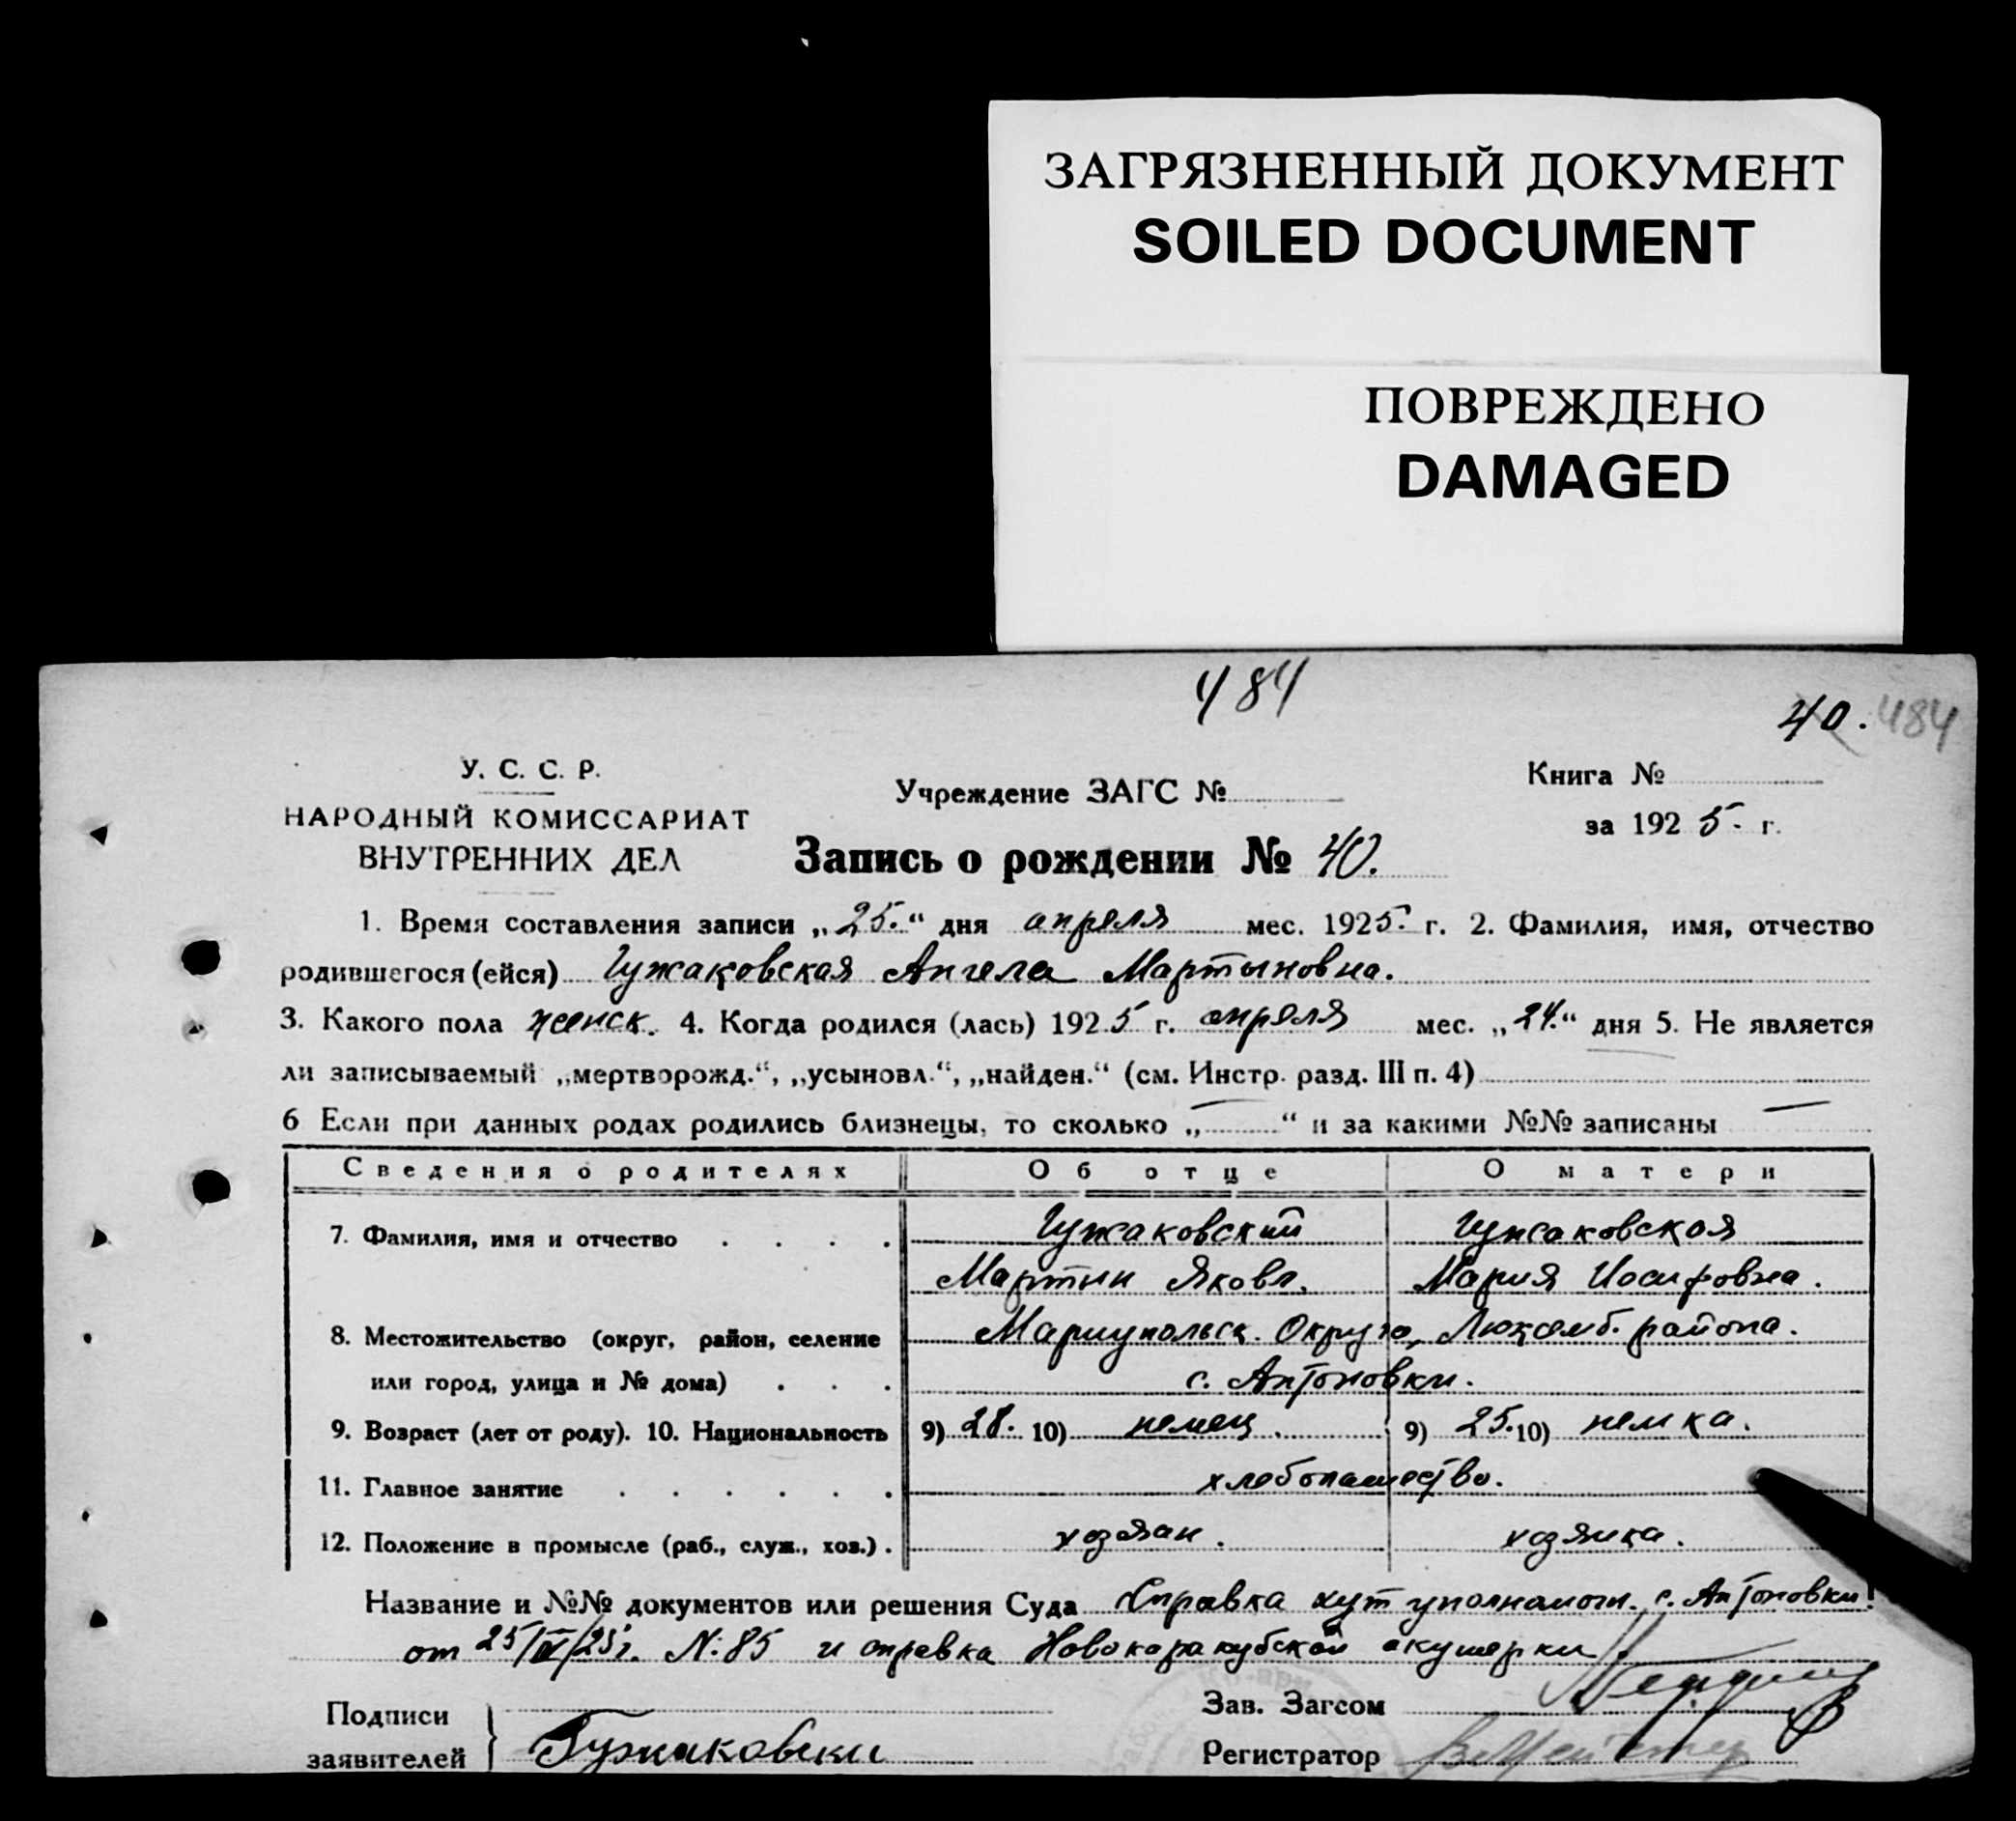 ЗАГРЯЗНЕННЫЙ ДОКУМЕНТ
SOILED DOCUMENT
ПОВРЕЖДЕНО
DAMAGED
484
40. 484
У. С. С. Р.
НАРОДНЫЙ КОМИССАРИАТ
ВНУТРЕННИХ ДЕЛ
Учреждение ЗАГС №
Книга №
за 1925. г.
Запись о рождении № 40.
1. Время составления записи „25.“ дня апреля мес. 1925. г. 2. Фамилия, имя, отчество
родившегося (ейся) Гужаковская Ангела Мартыновна.
3. Какого пола женск. 4. Когда родился (лась) 1925 г. апреля мес. „24.“ дня 5. Не является
ли записываемый „мертворожд.“, „усыновл.“, „найден.“ (см. Инстр. разд. III п. 4)
6 Если при данных родах родились близнецы, то сколько „—“ и за какими №№ записаны —
Сведения о родителях Об отце О матери
7. Фамилия, имя и отчество . . . . Гужаковский Гужаковская
Мартин Яковл. Мария Иосифовна.
8. Местожительство (округ, район, селение Мариупольск. Округа, Люксемб. района.
или город, улица и № дома) . . . с. Антоновки.
9. Возраст (лет от роду). 10. Национальность 9) 28. 10) немец. 9) 25. 10) немка.
11. Главное занятие . . . . . . хлебопашество.
12. Положение в промысле (раб., служ., хоз.) . хозяин. хозяйка.
Название и №№ документов или решения Суда Справка хут уполномоч. с. Антоновки
от 25/IV/25г. N: 85 и справка Новокаракубской акушерки
Подписи
заявителей
Гужаковски
Зав. Загсом
Регистратор